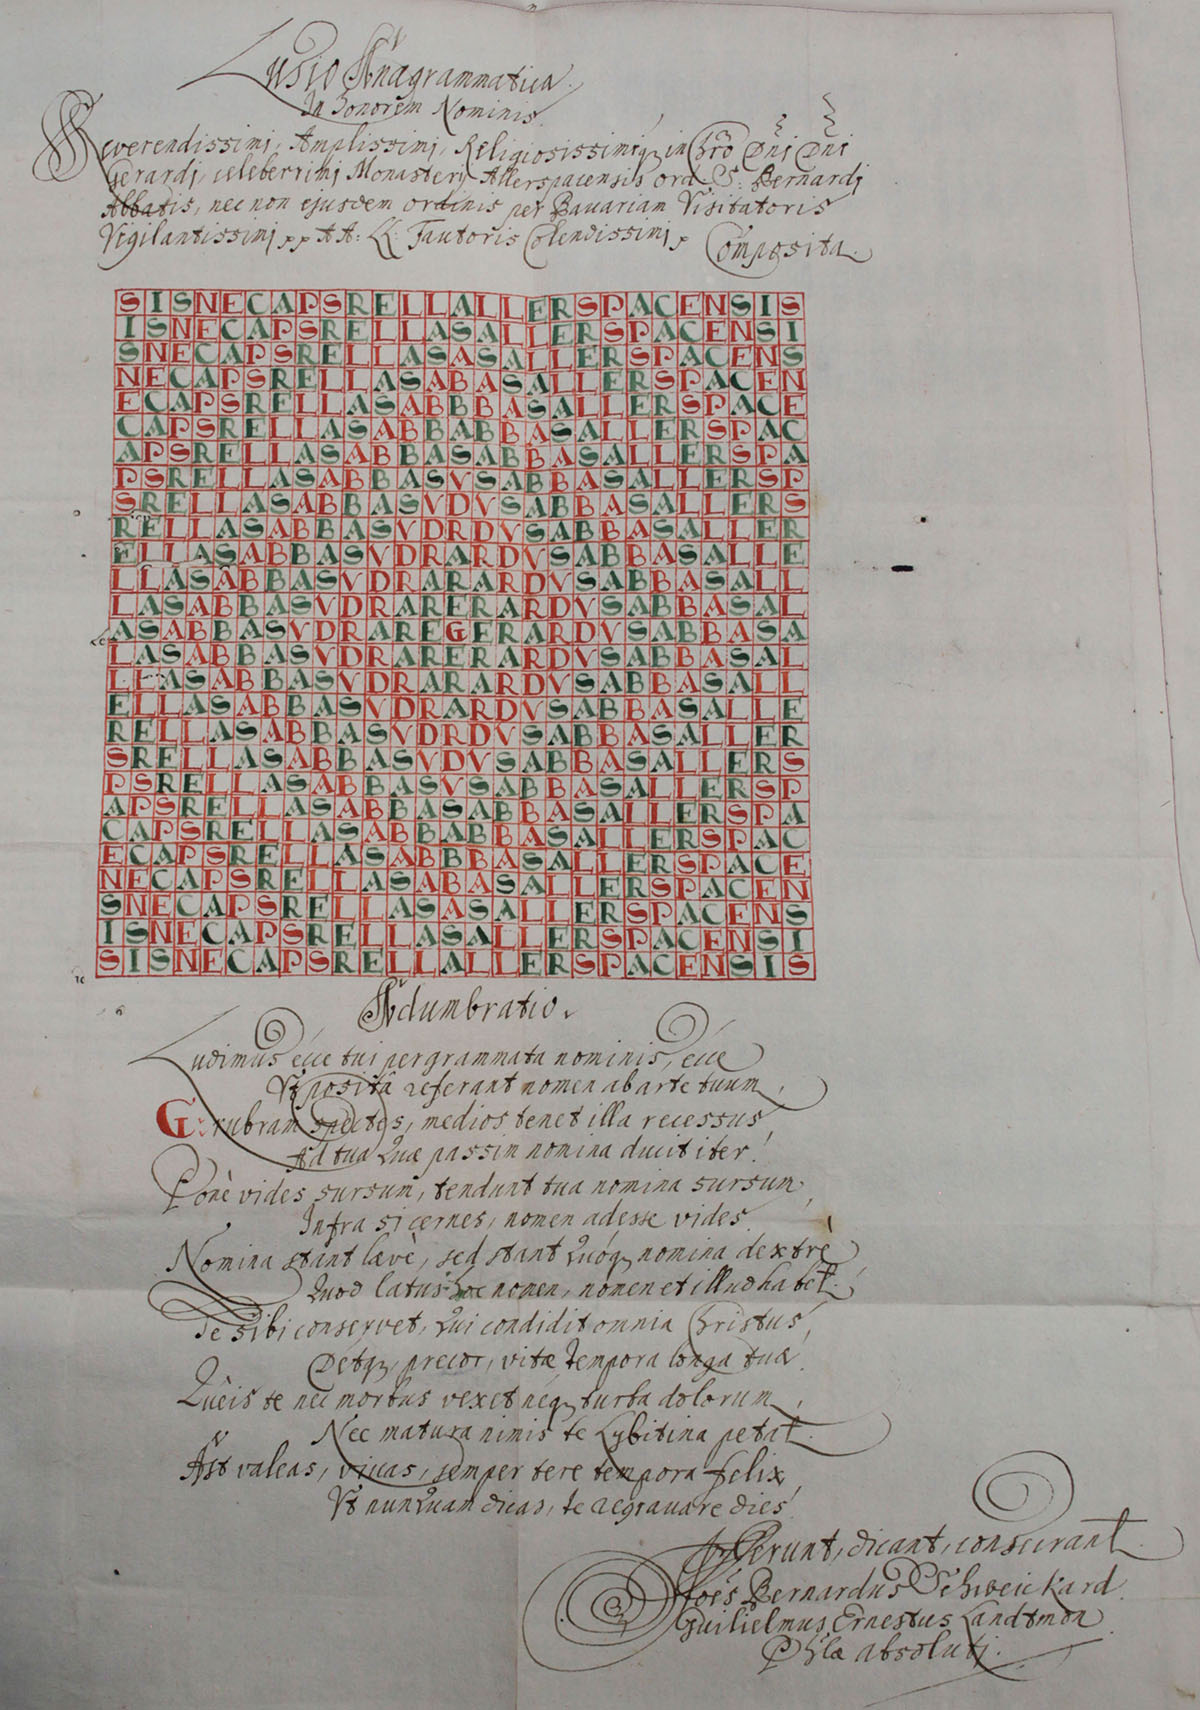 Lusio Anagrammatica
In honorem Nominis
Reverendissimi, Amplissimi, Religiosissimiq in Chrõ Dñi Dñi
Gerardi, celeberrimi Monasterij Allerspacensis ord: S: Bernardj
Abbatis, nec non ejusdem ordinis per Bavariam Visitatoris
Vigilantissimj pp AA: LL: Fautoris Colendissimj p Composita.
SISNECAPSRELLALLERSPACENSIS
ISNECAPSRELLASALLERSPACENSI
SNECAPSRELLASASALLERSPACENS
NECAPSRELLASABASALLERSPACEN
ECAPSRELLASABBBASALLERSPACE
CAPSRELLASABBABBASALLERSPAC
APSRELLASABBASABBASALLERSPA
PSRELLASABBASVSABBASALLERSP
SRELLASABBASVDVSABBASALLERS
RELLASABBASVDRDVSABBASALLER
ELLASABBASVDRARDVSABBASALLE
LLASABBASVDRARARDVSABBASALL
LASABBASVDRARERARDVSABBASAL
ASABBASVDRAREGERARDVSABBASA
LASABBASVDRARERARDVSABBASAL
LLASABBASVDRARARDVSABBASALL
ELLASABBASVDRARDVSABBASALLE
RELLASABBASVDRDVSABBASALLER
SRELLASABBASVDVSABBASALLERS
PSRELLASABBASVSABBASALLERSP
APSRELLASABBASABBASALLERSPA
CAPSRELLASABBABBASALLERSPAC
ECAPSRELLASABBBASALLERSPACE
NECAPSRELLASABASALLERSPACEN
SNECAPSRELLASASALLERSPACENS
ISNECAPSRELLASALLERSPACENSI
SISNECAPSRELLALLERSPACENSIS
Adumbratio.
Ludimus ecce tui per grammata nominis, ecce
Vt posita referant nomen ab arte tuum,
G: rubram spectes, medios tenet illa recessus,
Ad tua quæ passim nomina ducit iter.
Ponè vides sursum, tendunt tua nomina sursum,
Infra si cernes, nomen adesse vides.
Nomina stant lævè, sed stant quóq nomina dextrè,
Quod latus hoc nomen, nomen et illud habet.
Te sibi conservet, qui condidit omnia Christus,
Detq, precor, vitæ tempora longa tuæ.
Queis te nec morbus vexet neq turba dolorum,
Nec matura nimis te Lybitina petat.
Ast valeas, vivas, semper tere tempora felix,
Vt nunquam dicas, te aegravare dies.
Offerunt, dicant, consecrant
Joẽs Bernardus Schweickard
Guilielmus Ernestus Landtmon
Phlæ absolutj.